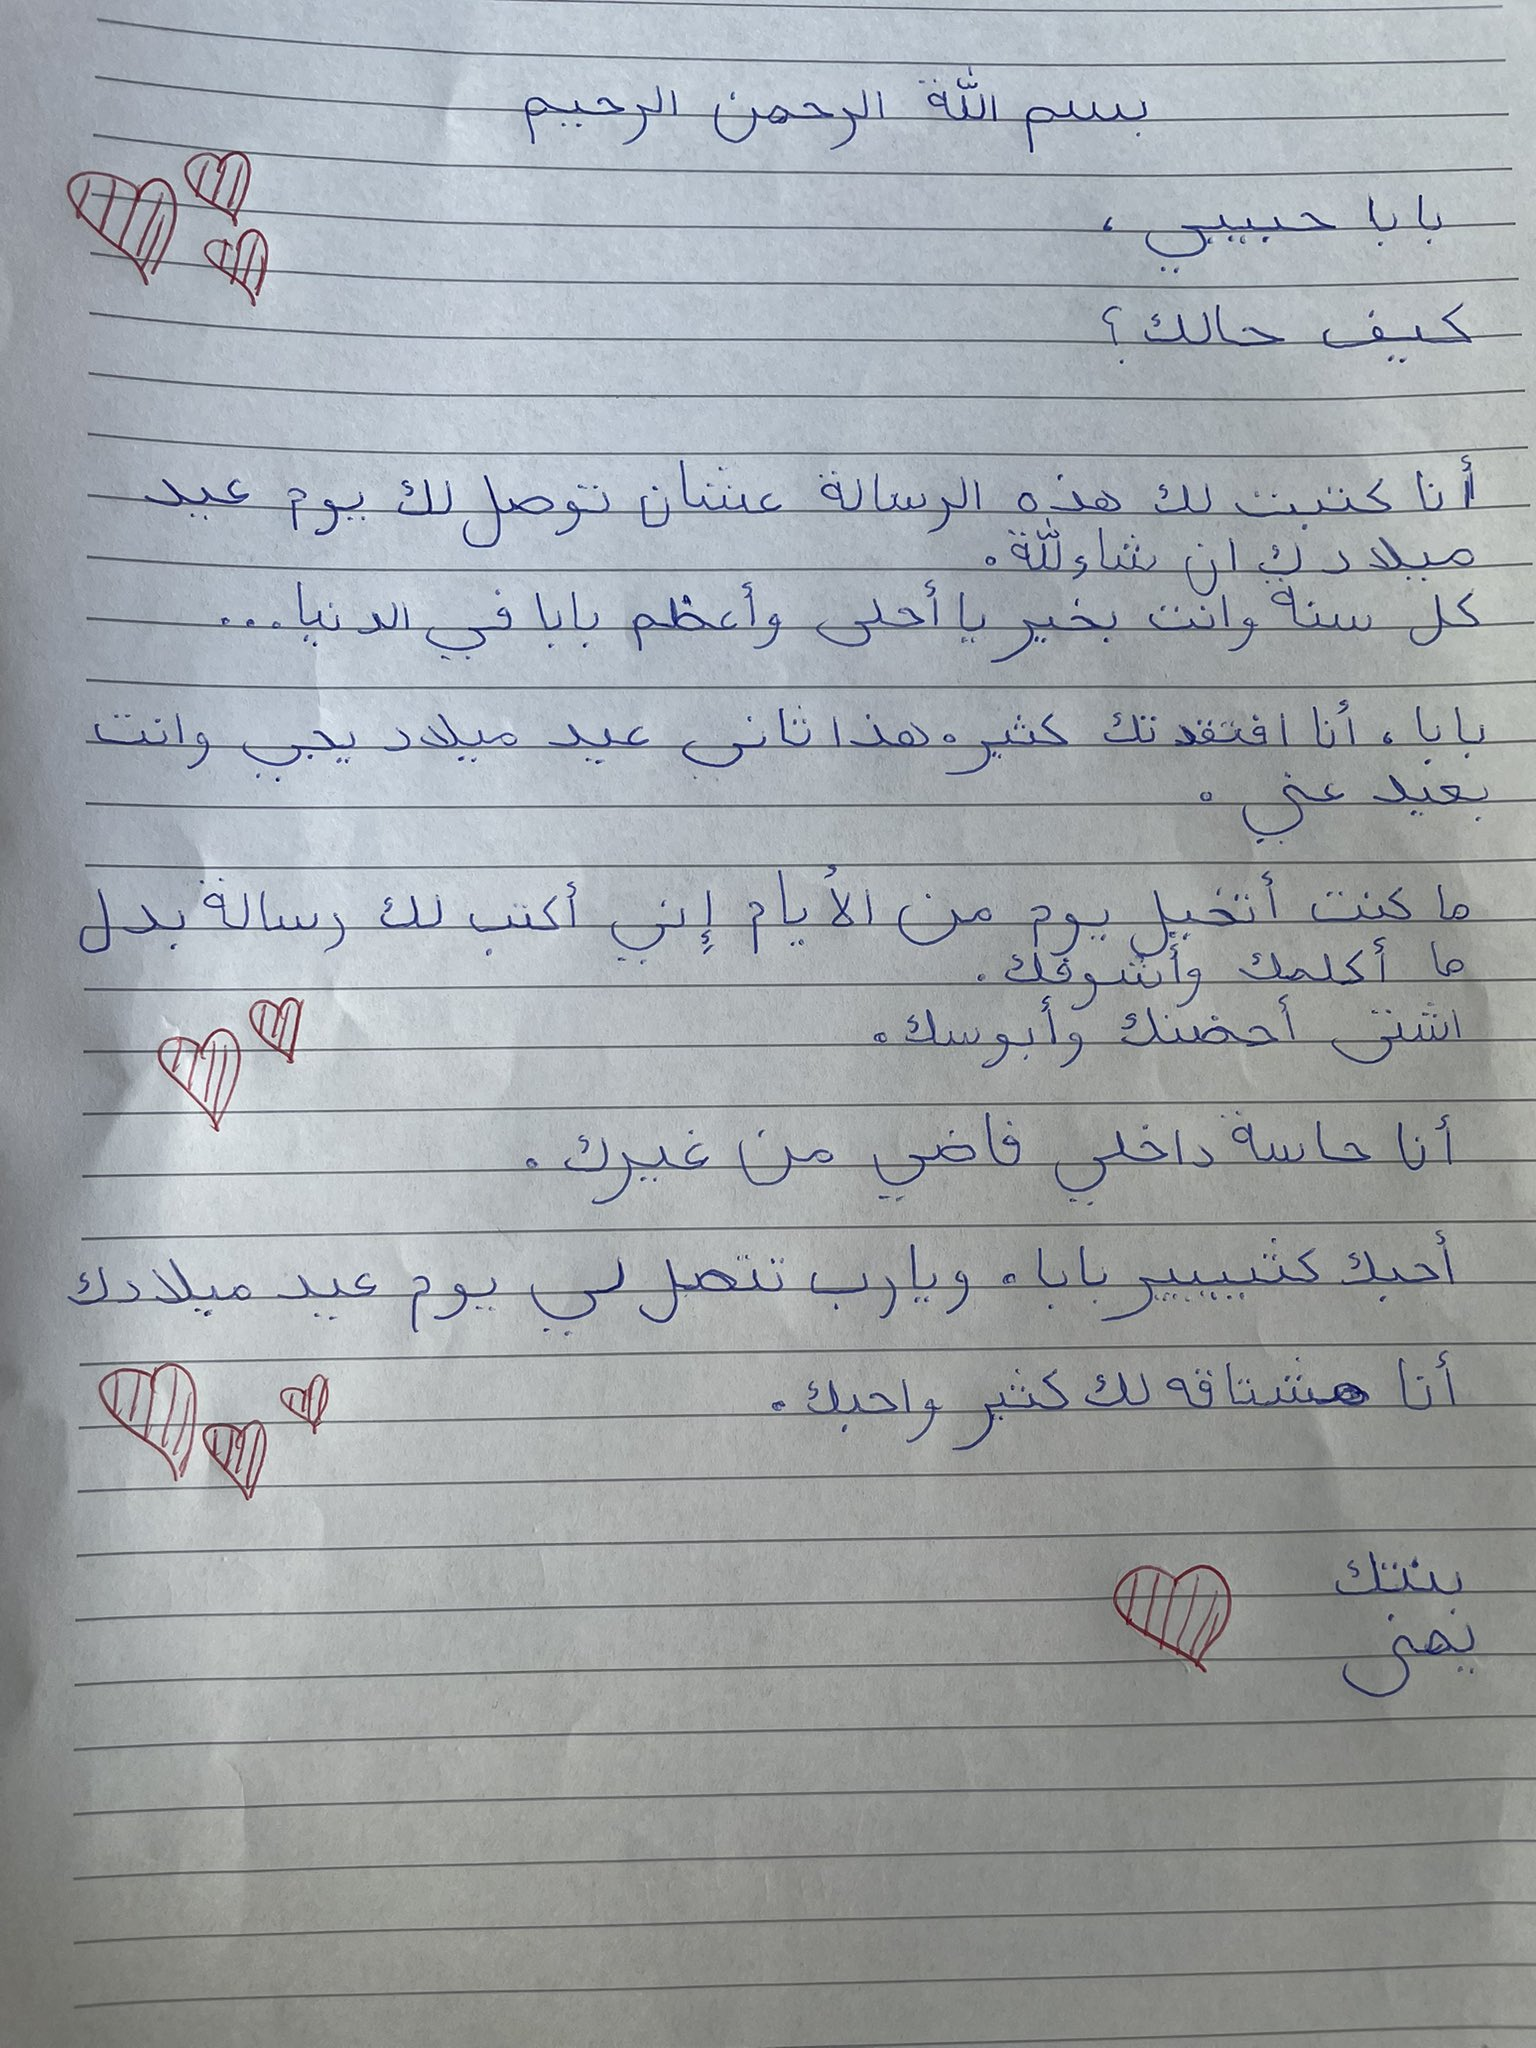 بسم اللّة الرحمن الرحيم
بابا حبيبي ،
كيف حالك؟
أنا كتبت لك هذه الرسالة عشان توصل لك يوم عيد
ميلادك ان شاءللّة.
كل سنة وانت بخير يا أحلى وأعظم بابا في الدنيا...
بابا، أنا افتقدتك كثير. هذا ثاني عيد ميلاد يجي وانت
بعيد عني.
ما كنت أتخيل يوم من الأيام إني أكتب لك رسالة بدل
ما أكلمك وأشوفك.
اشتى أحضنك وأبوسك.
أنا حاسة داخلي فاضي من غيرك.
أحبك كثيييير بابا. ويارب تتصل لي يوم عيد ميلادك
أنا مشتاقه لك كثير واحبك.
بنتك
يمنى